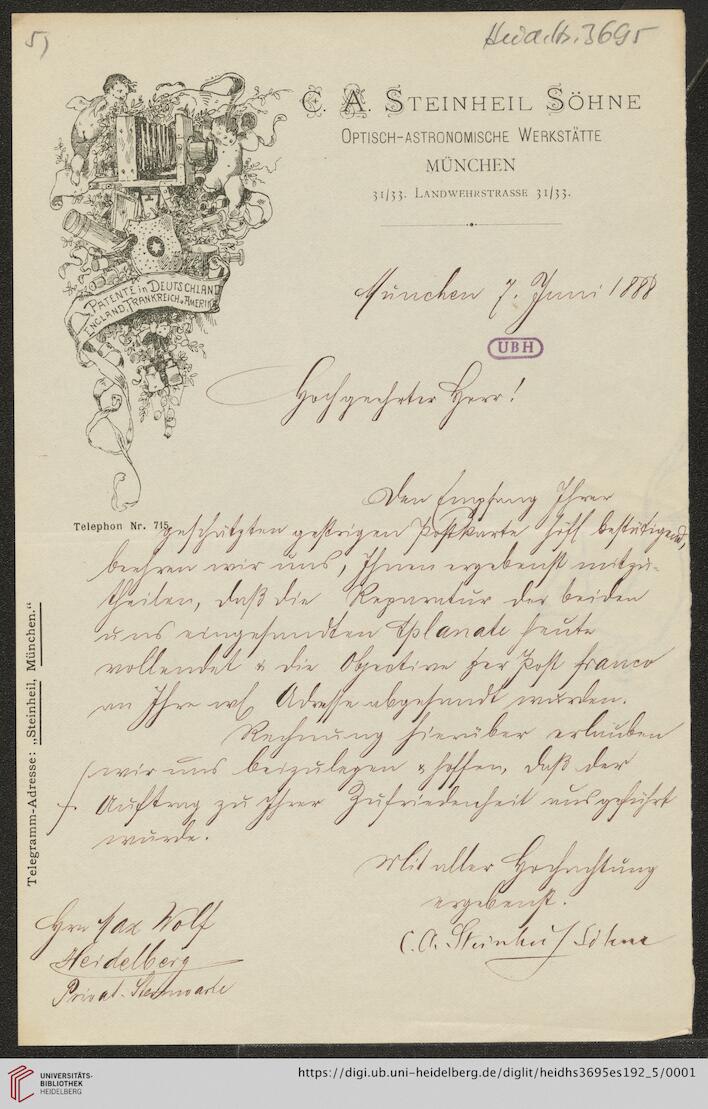 5)
Heid. Hs. 3695
C. A. STEINHEIL SÖHNE
OPTISCH-ASTRONOMISCHE WERKSTÄTTE
MÜNCHEN
31/33. LANDWEHRSTRASSE 31/33.
PATENTE in DEUTSCHLAND
ENGLAND, FRANKREICH u. AMERIKA
München 7. Juni 1888
UBH
Hochgeehrter Herr!
Den Empfang Ihrer
Telephon Nr. 715.
geschätzten gestrigen Postkarte höfl bestätigend,
beehren wir uns, Ihnen ergebenst mitzu-
theilen, daß die Reparatur der beiden
uns eingesandten Aplanate heute
vollendet & die Objective per Post franco
an Ihre Adresse abgesandt wurden.
Rechnung hierüber erlauben
wir uns beizulegen & hoffen, daß der
Auftrag zu Ihrer Zufriedenheit ausgeführt
wurde.
Mit aller Hochachtung
ergebenst.
C. A. Steinheil Söhne
Hrn Max Wolf
Heidelberg
Privat-Sternwarte
Telegramm-Adresse: „Steinheil, München.“
UNIVERSITÄTS-
BIBLIOTHEK
HEIDELBERG
https://digi.ub.uni-heidelberg.de/diglit/heidhs3695es192_5/0001